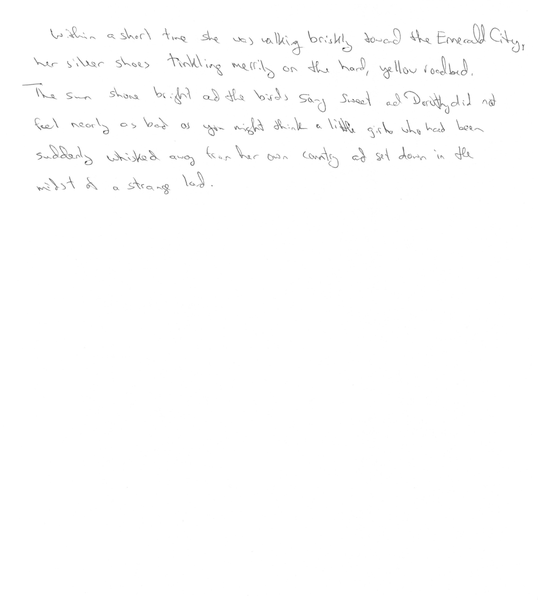 Within a short time she was walking briskly toward the Emerald City,
her silver shoes tinkling merrily on the hard, yellow roadbed.
The sun shone bright and the birds sang sweet and Dorothy did not
feel nearly as bad as you might think a little girls who had been
suddenly whisked away from her own country and set down in the
midst of a strange land.